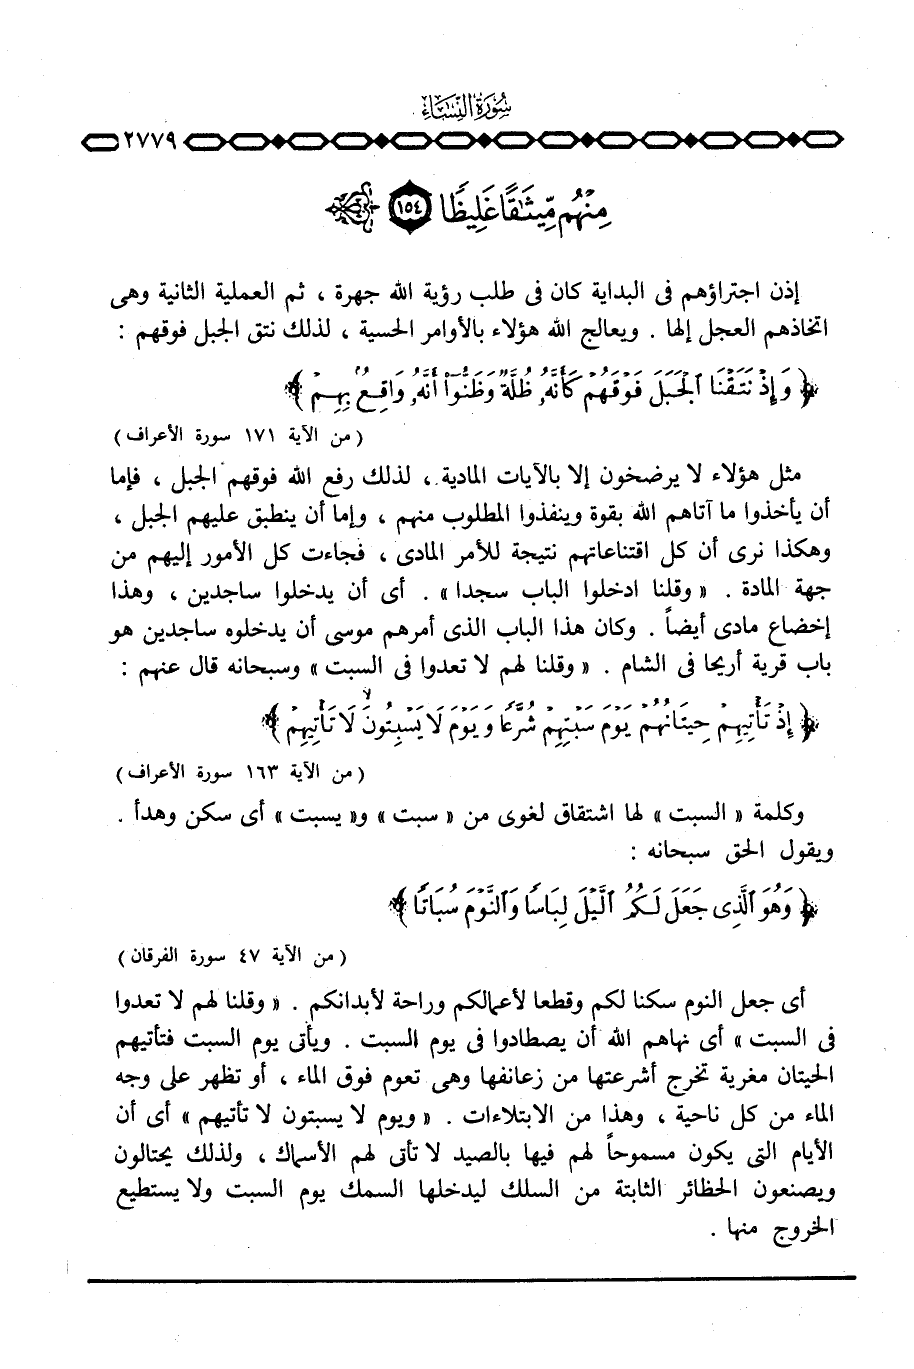 سُورَةُ النِّسَاءِ
٢٧٧٩
مِنْهُم مِّيثَٰقًا غَلِيظًا ١٥٤
إذن اجتراؤهم فى البداية كان فى طلب رؤية الله جهرة ، ثم العملية الثانية وهى
اتخاذهم العجل إلها . ويعالج الله هؤلاء بالأوامر الحسية ، لذلك نتق الجبل فوقهم :
﴿ وَإِذْ نَتَقْنَا ٱلْجَبَلَ فَوْقَهُمْ كَأَنَّهُۥ ظُلَّةٌ وَظَنُّوٓا۟ أَنَّهُۥ وَاقِعٌۢ بِهِمْ ﴾
( من الآية ١٧١ سورة الأعراف )
مثل هؤلاء لا يرضخون إلا بالآيات المادية ، لذلك رفع الله فوقهم الجبل ، فإما
أن يأخذوا ما آتاهم الله بقوة وينفذوا المطلوب منهم ، وإما أن ينطبق عليهم الجبل ،
وهكذا نرى أن كل اقتناعاتهم نتيجة للأمر المادى ، فجاءت كل الأمور إليهم من
جهة المادة . « وقلنا ادخلوا الباب سجدا » . أى أن يدخلوا ساجدين ، وهذا
إخضاع مادى أيضاً . وكان هذا الباب الذى أمرهم موسى أن يدخلوه ساجدين هو
باب قرية أريحا فى الشام . « وقلنا لهم لا تعدوا فى السبت » وسبحانه قال عنهم :
﴿ إِذْ تَأْتِيهِمْ حِيتَانُهُمْ يَوْمَ سَبْتِهِمْ شُرَّعًا وَيَوْمَ لَا يَسْبِتُونَ ۙ لَا تَأْتِيهِمْ ﴾
( من الآية ١٦٣ سورة الأعراف )
وكلمة « السبت » لها اشتقاق لغوى من « سبت » و« يسبت » أى سكن وهدأ .
ويقول الحق سبحانه :
﴿ وَهُوَ ٱلَّذِى جَعَلَ لَكُمُ ٱلَّيْلَ لِبَاسًا وَٱلنَّوْمَ سُبَاتًا ﴾
( من الآية ٤٧ سورة الفرقان )
أى جعل النوم سكنا لكم وقطعا لأعمالكم وراحة لأبدانكم . « وقلنا لهم لا تعدوا
فى السبت » أى نهاهم الله أن يصطادوا فى يوم السبت . ويأتى يوم السبت فتأتيهم
الحيتان مغرية تخرج أشرعتها من زعانفها وهى تعوم فوق الماء ، أو تظهر على وجه
الماء من كل ناحية ، وهذا من الابتلاءات . « ويوم لا يسبتون لا تأتيهم » أى أن
الأيام التى يكون مسموحاً لهم فيها بالصيد لا تأتى لهم الأسماك ، ولذلك يحتالون
ويصنعون الحظائر الثابتة من السلك ليدخلها السمك يوم السبت ولا يستطيع
الخروج منها .